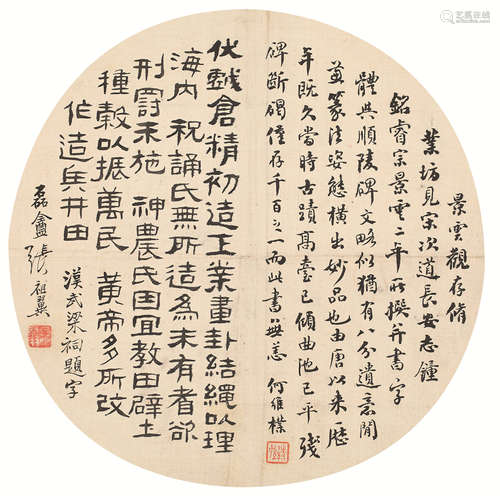 景雲觀在脩
業坊見宋次道長安志鐘
銘睿宗景雲二年所撰并書字
體與順陵碑文略似猶有八分遺意間
兼篆法姿態橫出妙品也由唐以来歷
年既久當時古蹟高臺已傾曲池已平殘
碑斷碣僅存千百之一而此書無恙 何維樸
伏戲倉精初造王業畫卦結繩以理
海內 祝誦氏無所造為未有耆欲
刑罰未施 神農氏因宜教田辟土
種穀以振萬民 黃帝多所改
作造兵井田
漢武梁祠題字
磊盦張祖翼